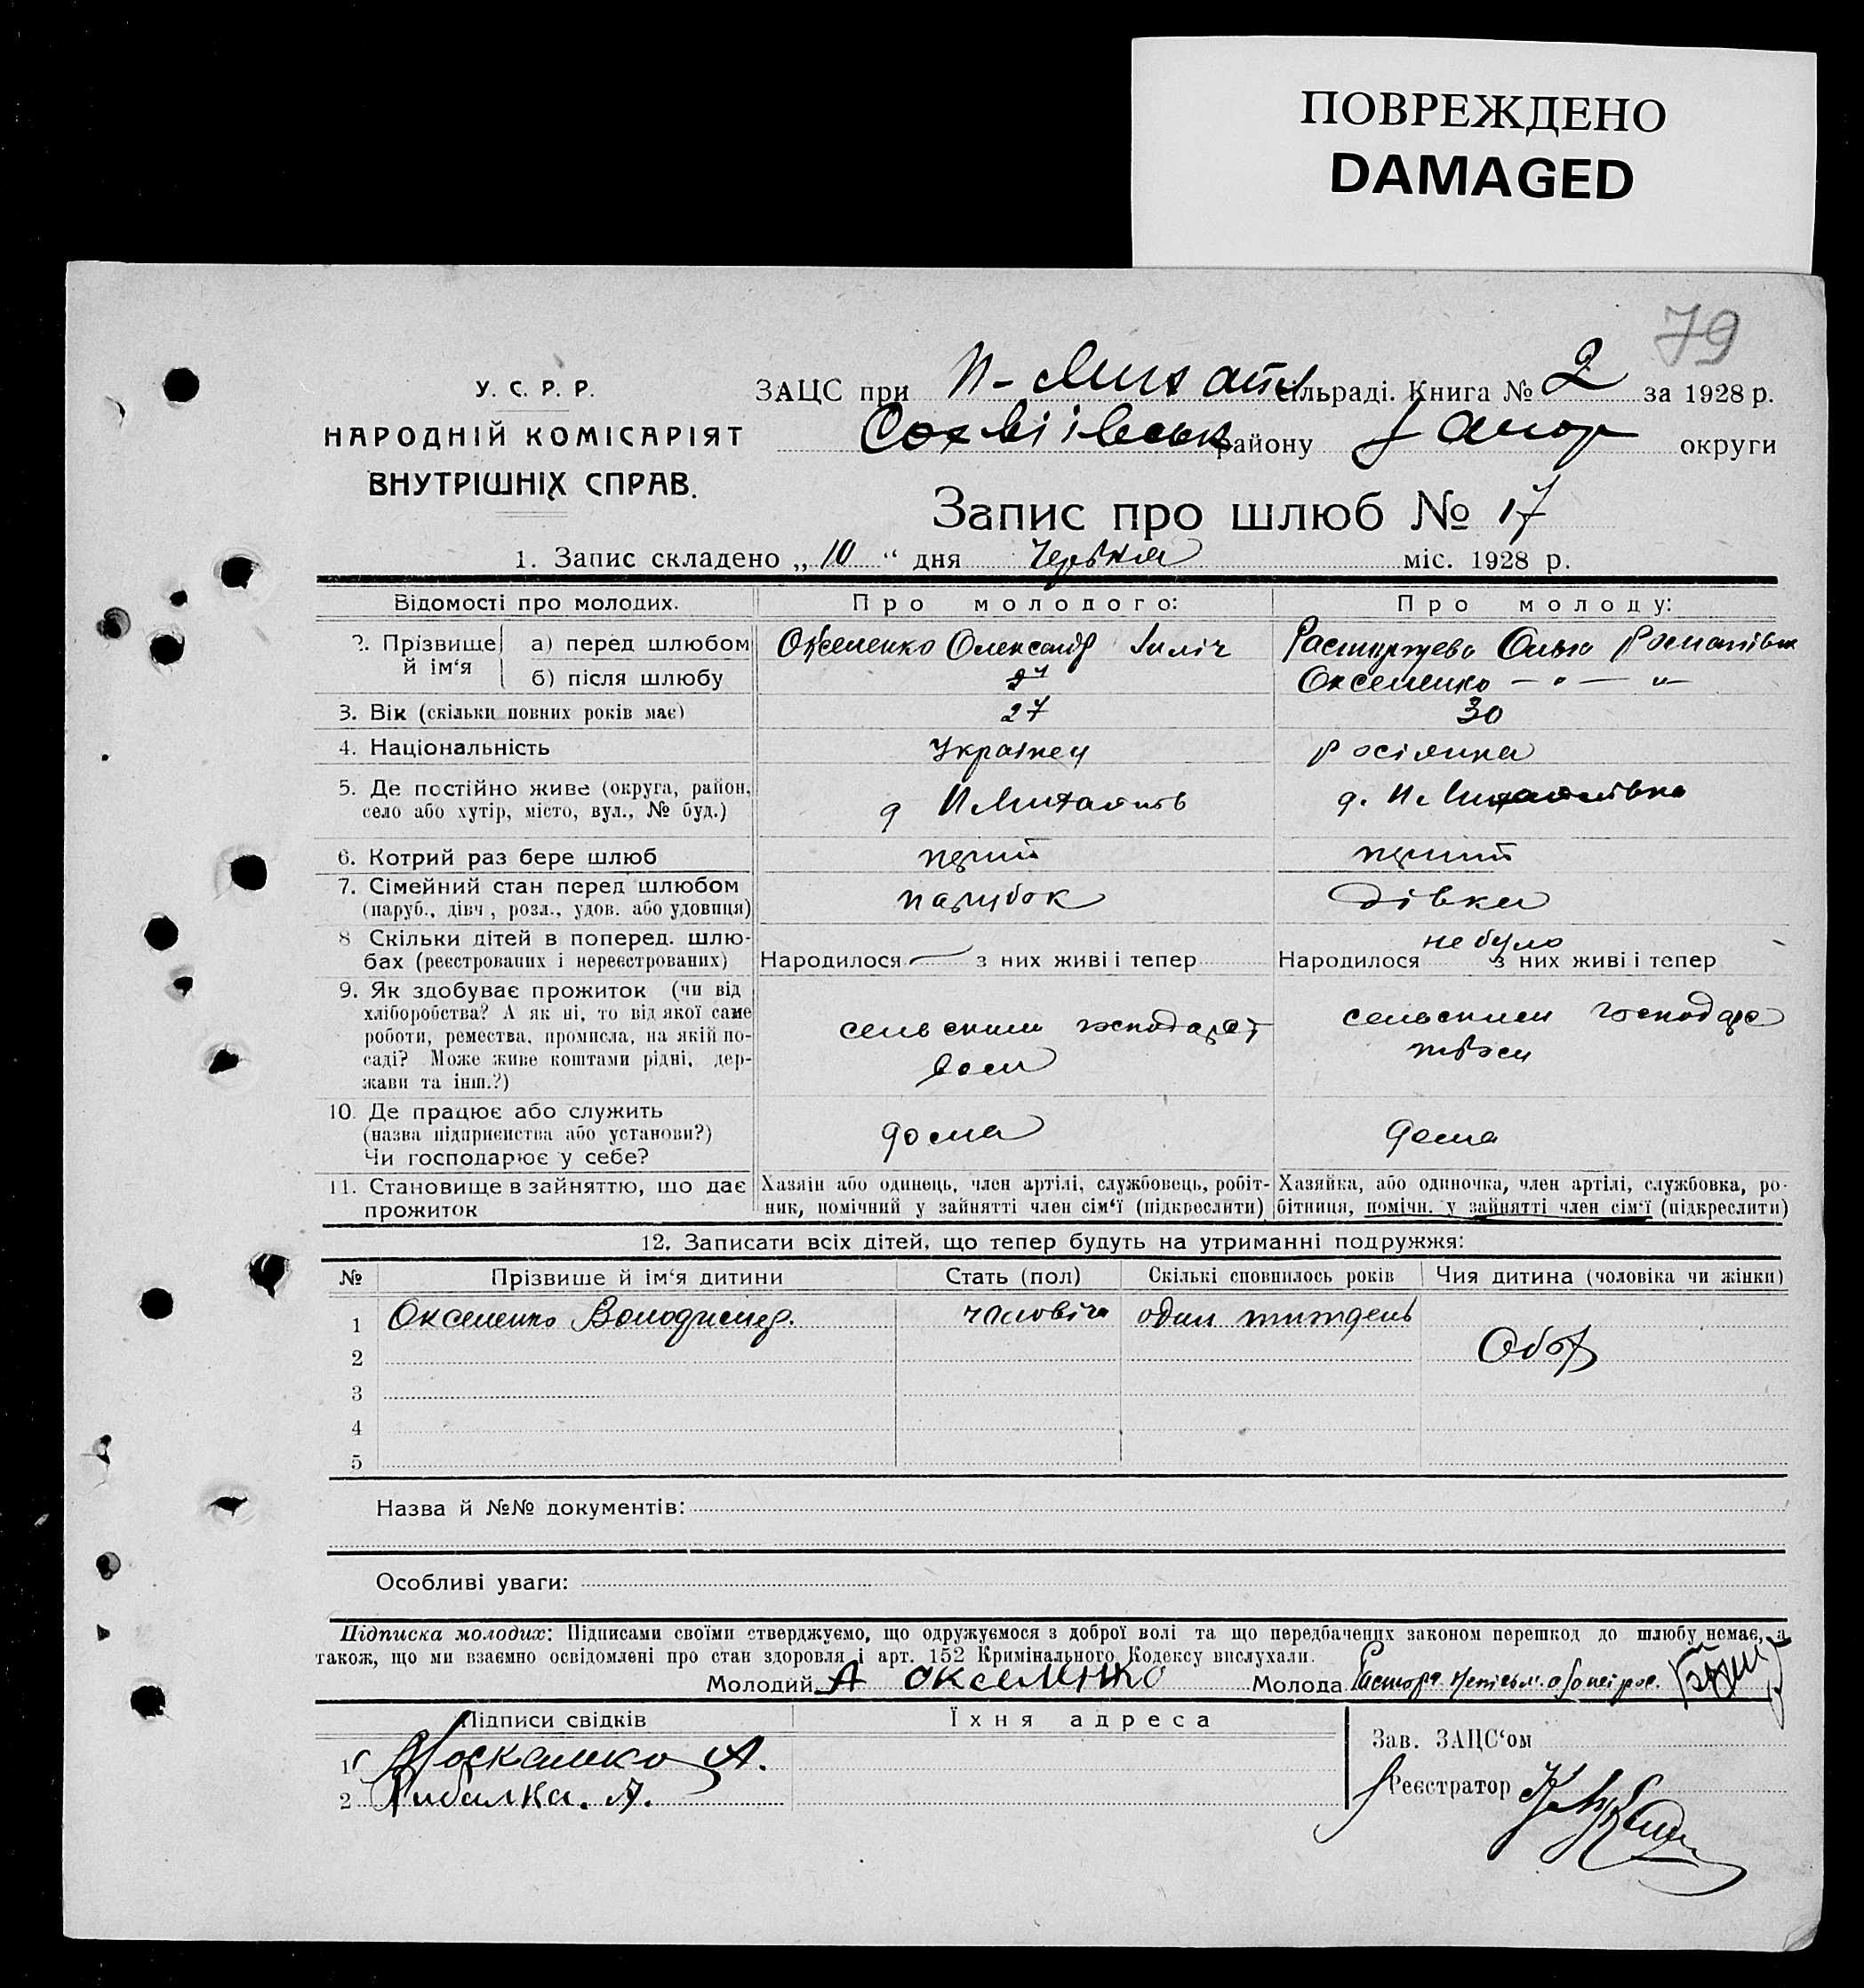 ПОВРЕЖДЕНО
DAMAGED
79
У. С. Р. Р.
НАРОДНІЙ КОМІСАРІЯТ
ВНУТРІШНІХ СПРАВ.
ЗАЦС при сільраді. Книга № 2 за 1928 р.
району округи
Запис про шлюб № 17
1. Запис складено „ 10 “ дня Червня міс. 1928 р.
Відомості про молодих. Про молодого: Про молоду:
2. Прізвище й ім‘я а) перед шлюбом Оксененко Олександр Ілліч Ольга Романівна
б) після шлюбу Оксененко — „ — „ —
3. Вік (скільки повних років має) 27 30
4. Національність Українец росіянка
5. Де постійно живе (округа, район, село або хутір, місто, вул., № буд.)
6. Котрий раз бере шлюб
7. Сімейний стан перед шлюбом парубок дівка
(паруб., дівч., розл., удов. або удовиця)
8 Скільки дітей в поперед. шлю- не було
бах (реєстрованих і нереєстрованих) Народилося — з них живі і тепер Народилося з них живі і тепер
9. Як здобуває прожиток (чи від
хліборобства? А як ні, то від якої саме
роботи, ремества, промисла, на якій по-
саді? Може живе коштами рідні, дер-
жави та інш.?)
10. Де працює або служить
(назва підприємства або установи?) дома дома
Чи господарює у себе?
11. Становище в зайняттю, що дає Хазяїн або одинець, член артілі, службовець, робіт- Хазяйка, або одиночка, член артілі, службовка, ро-
прожиток ник, помічний у зайнятті член сім‘ї (підкреслити) бітниця, помічн. у зайнятті член сім‘ї (підкреслити)
12. Записати всіх дітей, що тепер будуть на утриманні подружжя:
№ Прізвище й ім‘я дитини Стать (пол) Скількі сповнилось років Чия дитина (чоловіка чи жінки)
1 Оксененко Володимир. один тиждень
2
3
4
5
Назва й №№ документів:
Особливі уваги:
Підписка молодих: Підписами своїми стверджуємо, що одружуємося з доброї волі та що передбачених законом перешкод до шлюбу немає, а
також, що ми взаємно освідомлені про стан здоровля і арт. 152 Кримінального Кодексу вислухали.
Молодий А Молода
Підписи свідків Їхня адреса
Зав. ЗАЦС‘ом
1 А.
2 Рибалка. А.
Реєстратор